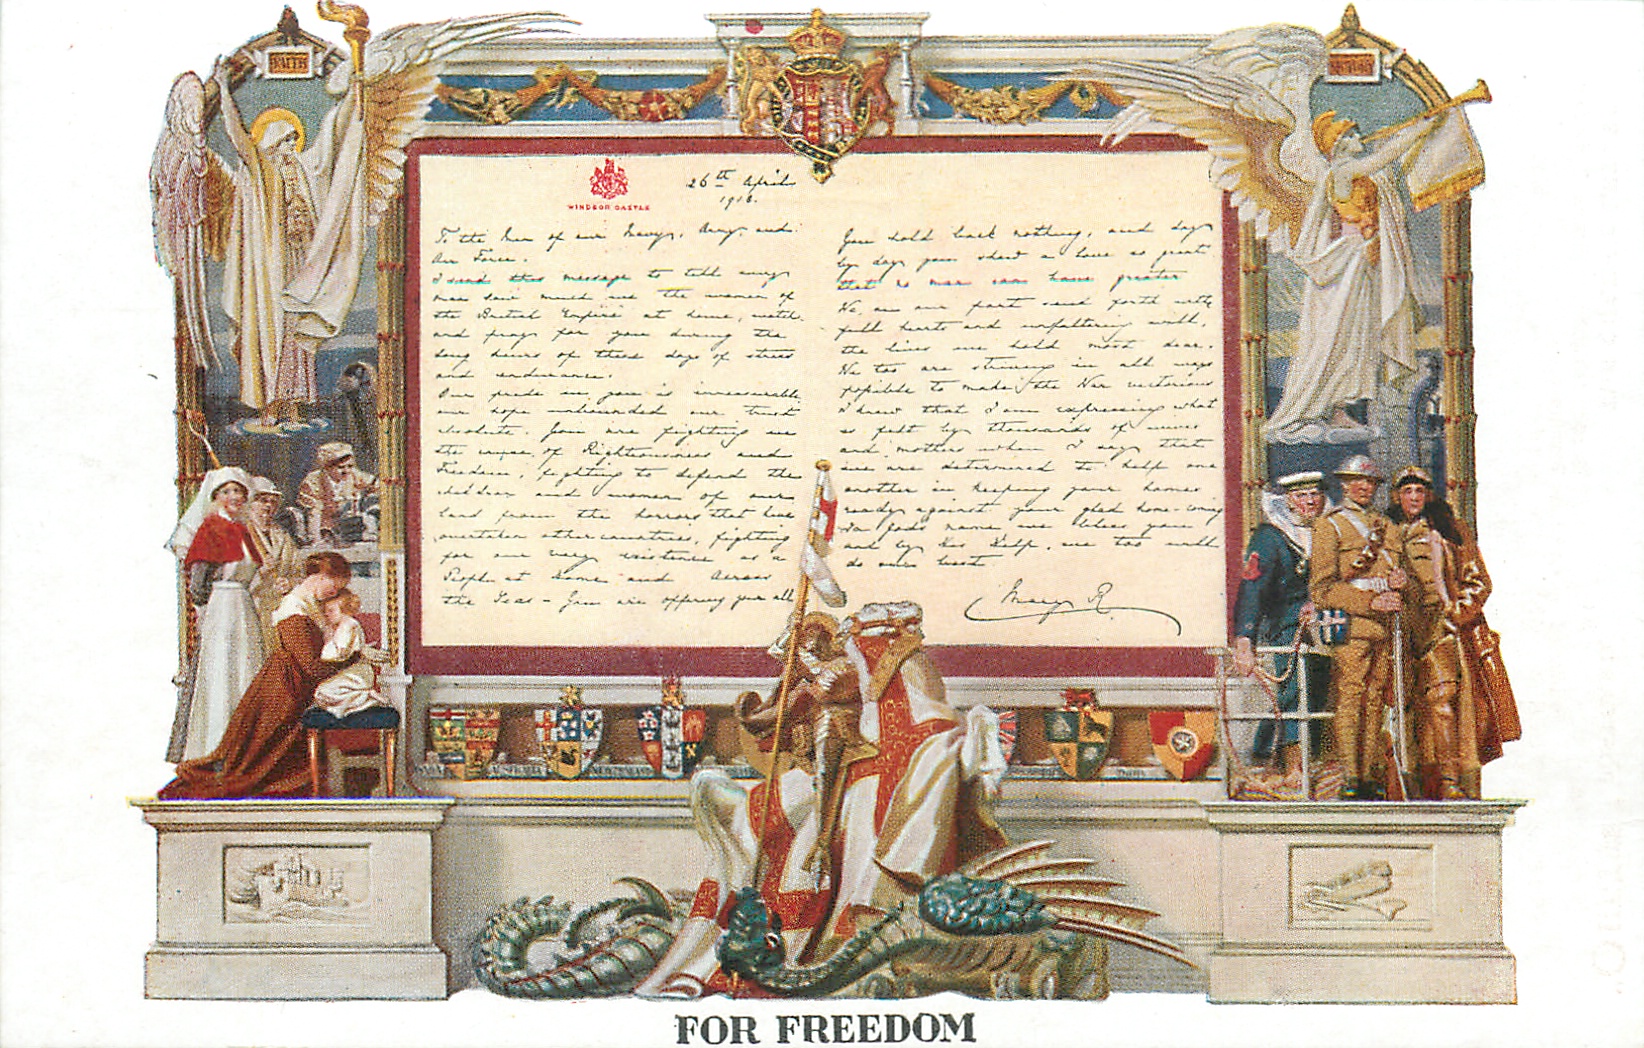 FAITH
VICTORY
WINDSOR CASTLE
26th April
1918.
To the Men of our Navy, Army, and
Air Force.
I send this message to tell every
man how much we the women of
the British Empire at home, watch
and pray for you during the
long hours of these days of stress
and endurance.
Our pride in you is immeasurable,
our hope unbounded our trust
absolute. You are fighting in
the cause of Righteousness and
Freedom, fighting to defend the
children and women of our
land from the horrors that have
overtaken other countries, fighting
for our very existence as a
People at Home and Across
the Seas – You are offering your all
You hold back nothing, and day
by day you show a love so great
that no man can have greater
We, on our part send forth with
full hearts and unfaltering will,
the lives we hold most dear.
We too are striving in all ways
possible to make the War victorious
I know that I am expressing what
is felt by thousands of wives
and mothers when I say that
we are determined to help one
another in keeping your homes
ready against your glad home-coming
In God's name we bless you
and by His Help, we too will
do our best.
Mary R.
AUSTRALIA
FOR FREEDOM